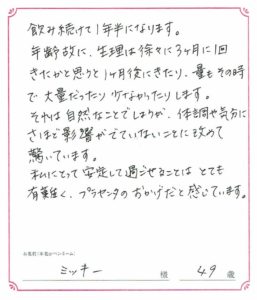 飲み続けて1年半になります。
年齢故に、生理は徐々に3ヶ月に1回
きたかと思うと1ヶ月後にきたり、量もその時
で大量だったり少なかったりします。
それは自然なことでしょうが、体調や気分に
さほど影響がでていないことに改めて
驚いています。
私にとって安定して過ごせることはとても
有難く、プラセンタのおかげだと感じています。
お名前(本名orペンネーム)
ミッキー 様 49 歳